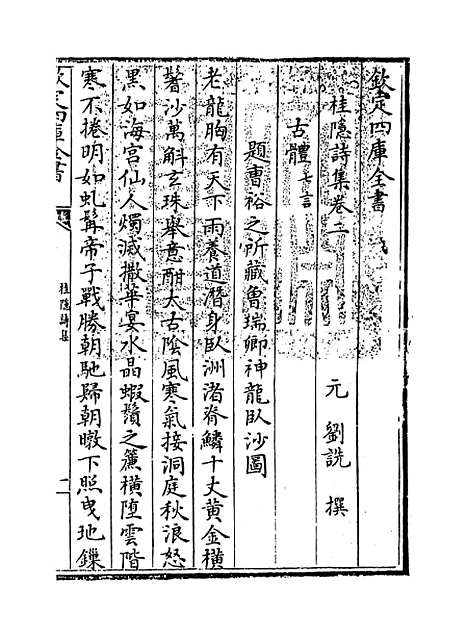 欽定四庫全書
桂隱詩集卷二
元 劉詵 撰
古體七言
題曹裕之所藏魯瑞卿神龍臥沙圖
老龍胸有天下雨養道潛身臥洲渚脊鱗十丈黃金橫
鬐沙萬斛玄珠舉意酣太古陰風寒氣接洞庭秋浪怒
黑如海宮仙人燭滅撒華宴水晶蝦鬚之簾橫墮雲階
寒不捲明如虬髯帝子戰勝朝馳歸朝暾下照曳地鏁
欽定四庫全書
桂隱詩集